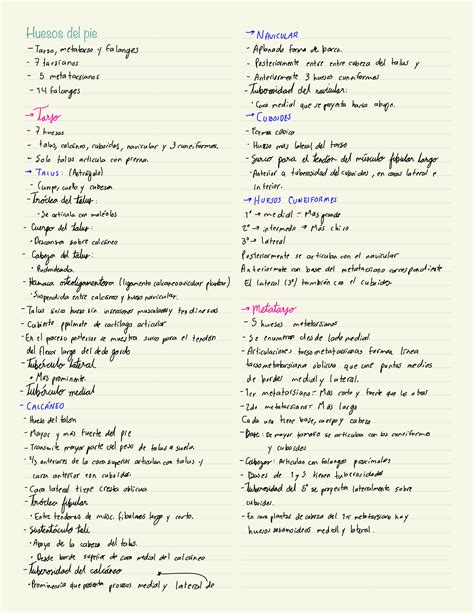 Huesos del pie
- Tarso, metatarso y falanges
- 7 tarsianos
- 5 metatarsianos
- 14 falanges
→ Tarso
- 7 huesos
- talus, calcáneo, cuboides, navicular y 3 cuneiformes.
- Solo talus articula con pierna.
→ TALUS: (Astrágalo)
- Cuerpo, cuello y cabeza
- Tróclea del talus:
· Se articula con maléolos
- Cuerpo del talus:
· Descansa sobre calcáneo
- Cabeza del talus:
· Redondeada.
- Hamaca osteoligamentosa (ligamento calcaneonavicular plantar)
· Suspendida entre calcáneo y hueso navicular.
- Talus único hueso sin inserciones musculares y tendinosas
- Cubierto ppalmente de cartílago articular
- En el proceso posterior se muestra surco para el tendón
del flexor largo del dedo gordo
- Tubérculo lateral
• Mas prominente.
- Tubérculo medial
- CALCÁNEO
- Hueso del talón
- Mayor y más fuerte del pie
- Transmite mayor parte del peso de talus a suelo.
- anteriores de la cara superior articulan con talus y
cara anterior con cuboides.
- Cara lateral tiene cresta oblicua
- Tróclea fibular
· Entre tendones de músc. fibulares largo y corto.
- Sustentáculo tali
· Apoyo de la cabeza del talus.
· Desde borde superior de cara medial del calcáneo
- Tuberosidad del calcáneo
· Prominencia que presenta procesos medial y lateral de
→ NAVICULAR
- Aplanado forma de barco.
- Posteriormente entre cabeza del talus y
- Anteriormente 3 huesos cuneiformes
- Tuberosidad del navicular:
· Cara medial que se proyecta hacia abajo.
→ CUBOIDES
- Forma cúbica
- Hueso más lateral del tarso
- Surco para el tendón del músculo fibular largo
· Anterior a tuberosidad del cuboides, en caras lateral e
inferior.
→ HUESOS CUNEIFORMES
1° → medial = Mas grande
2° → intermedio → Mas chico
3° → lateral
Posteriormente se articulan con el navicular
Anteriormente con base del metatarsiano correspondiente
El lateral (3°) también con el cuboides.
→ Metatarso
- 5 huesos metatarsianos
- Se enumeran desde lado medial
- Articulaciones tarsometatarsianas forman línea
tarsometatarsiana oblicua que une puntos medios
de bordes medial y lateral.
- 1er metatarsiano = Mas corto y fuerte que los otros
- 2do metatarsiano = Más largo
Cada uno tiene base, cuerpo y cabeza
- Base: De mayor tamaño se articulan con los cuneiformes
y cuboides
- Cabezas: Articulan con falanges proximales
- Bases de 1 y 5 tienen tuberosidades
- Tuberosidad del 5° se proyecta lateralmente sobre
cuboides.
- En cara plantar de cabeza del 1er metatarsiano hay
huesos sesamoideos medial y lateral.